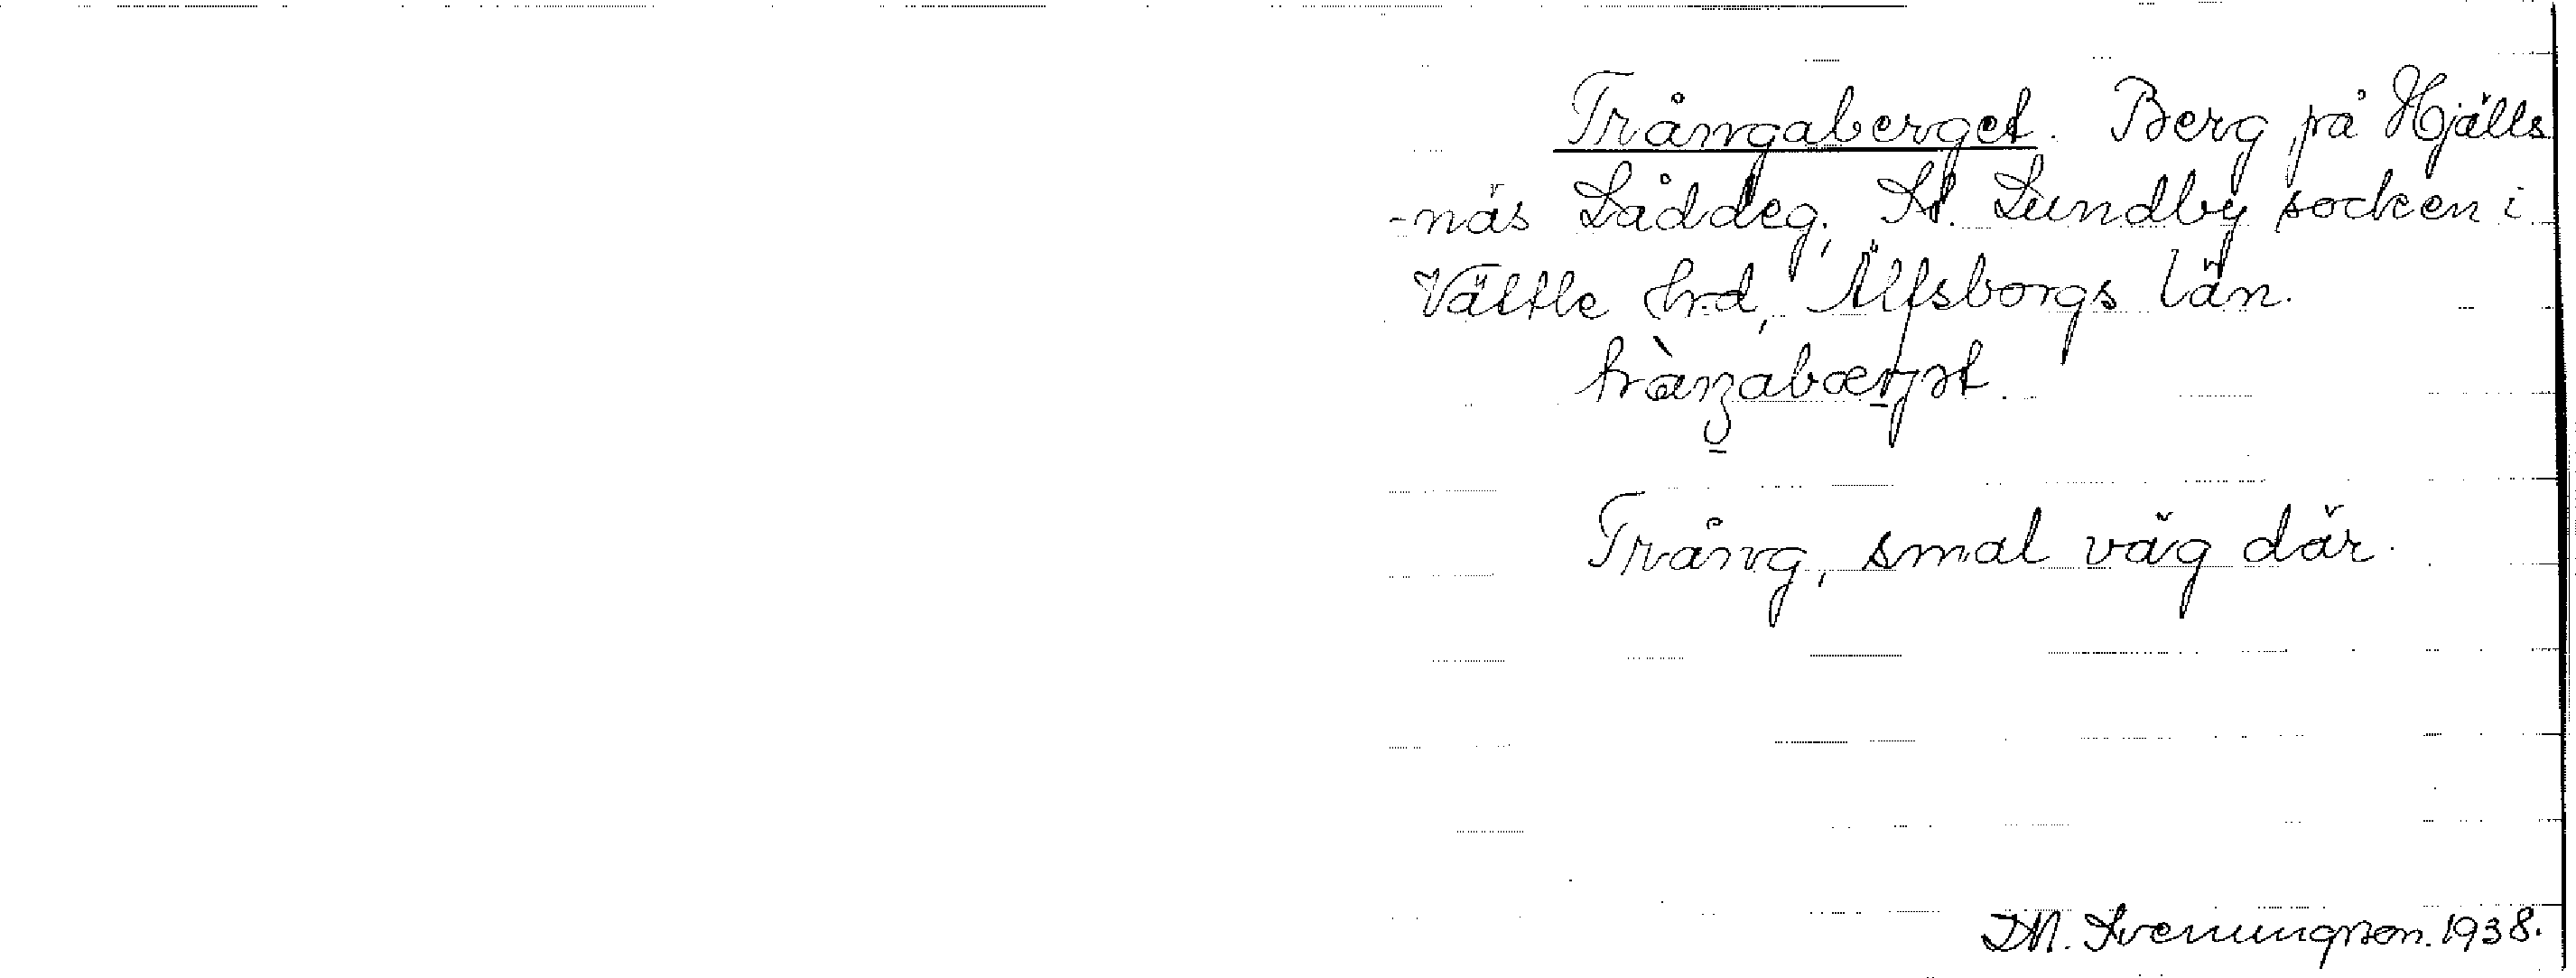 Trångaberget. Berg på Hjälls
-näs Låddeg, St. Lundby socken i
Vättle hrd, Älfsborgs län.
Trång, smal väg där.
D.M. Svenungson. 1938.